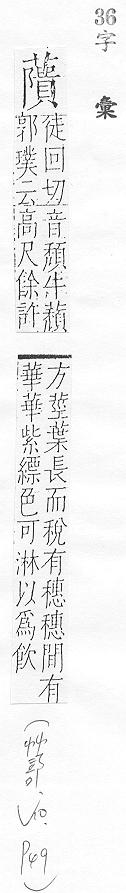 36字　彙
藬
徒回切音頹牛蘈
郭璞云高尺餘許
方莖葉長而稅有穗穗間有
華華紫縹色可淋以爲飲
(艸部. V10. P49)